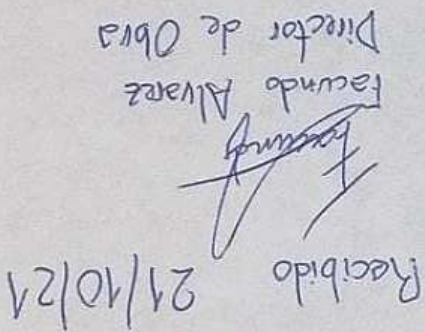 Recibido 21/10/21
Facundo
Facundo Alvarez
Director de Obra